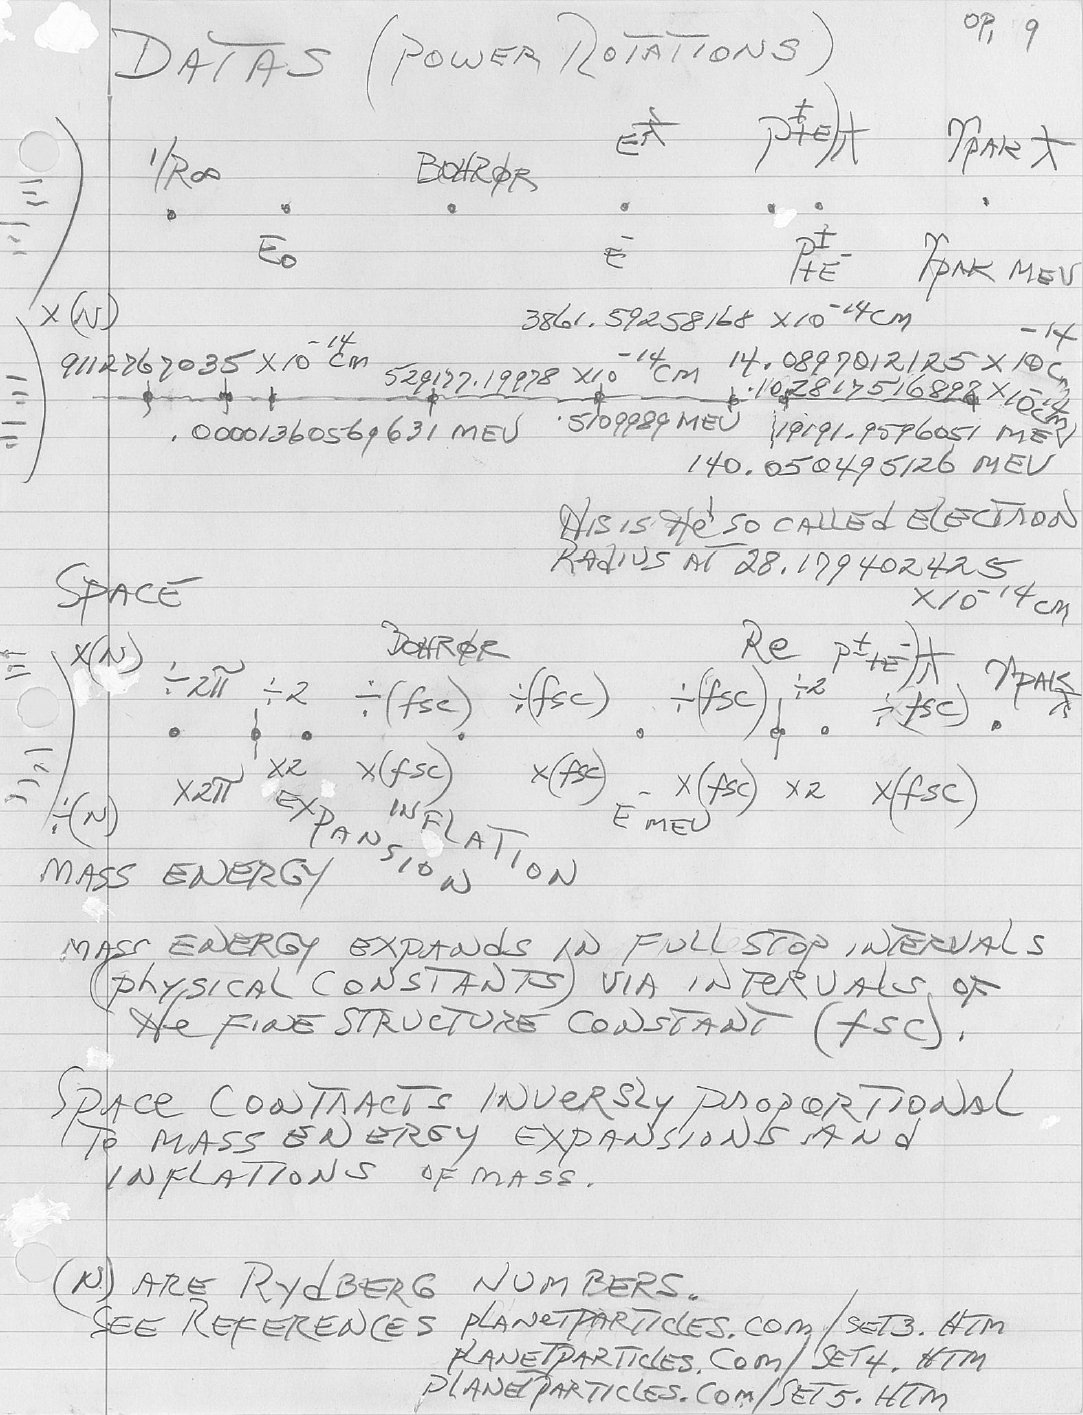 OP. 9
DATAS (POWER ROTATIONS)
1/R∞ BOHR E ƛ P±+E)ƛ PAK ƛ
E₀ E⁻ P±+E⁻ PAK MEV
X(N)
3861.59258168 X10⁻¹⁴CM
9112767035 X10⁻¹⁴CM 529177.19978 X10⁻¹⁴CM 14.0897012125 X10⁻¹⁴CM
.102817516892 X10⁻¹⁴CM
.00001360569631 MEV .5109989 MEV 19191.9596051 MEV
140.050495126 MEV
THIS IS THE SO CALLEd ELECTRON
RAdIUS AT 28.179402425
X10⁻¹⁴CM
SPACE
X(N) BOHR Re P±+E⁻)ƛ PAK ƛ
÷2π ÷2 ÷(fSC) ÷(fSC) ÷(fSC) ÷2 ÷(fSC)
X2π X2 X(fSC) X(fSC) X(fSC) X2 X(fSC)
÷(N) EXPANSION INFLATION E⁻ MEV
MASS ENERGY
MASS ENERGY EXPANdS IN FULL STOP INTERVALS
(PhYSICAL CONSTANTS) VIA INTERVALS OF
the FINE STRUCTURE CONSTANT (fSC).
SPACE CONTRACTS INVeRSLy PROPORTIONAL
TO MASS ENERGY EXPANSIONS ANd
INFLATIONS OF MASS.
(N) ARE RydBERG NUMBERS.
SEE REFERENCES PLANETPARTICLES.COM/SET3.HTM
PLANETPARTICLES.COM/SET4.HTM
PLANETPARTICLES.COM/SET5.HTM